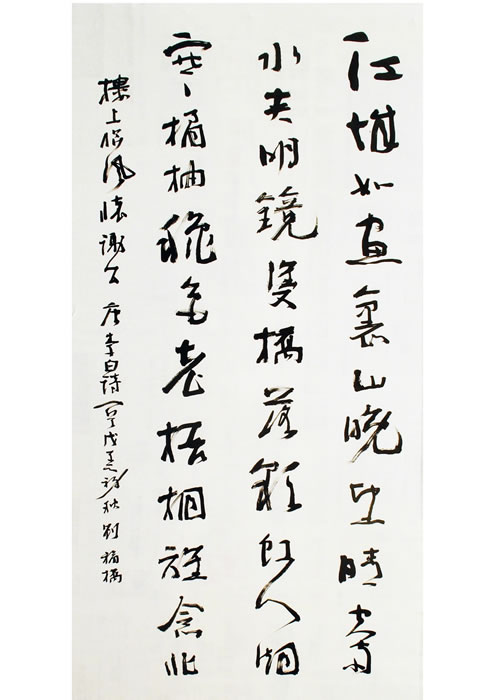 江城如画裏山晚望晴空兩
水夹明鏡雙橋落彩虹人烟
寒橘柚秋色老梧桐誰念北
樓上臨風懷謝公 唐李白詩 秋 劉